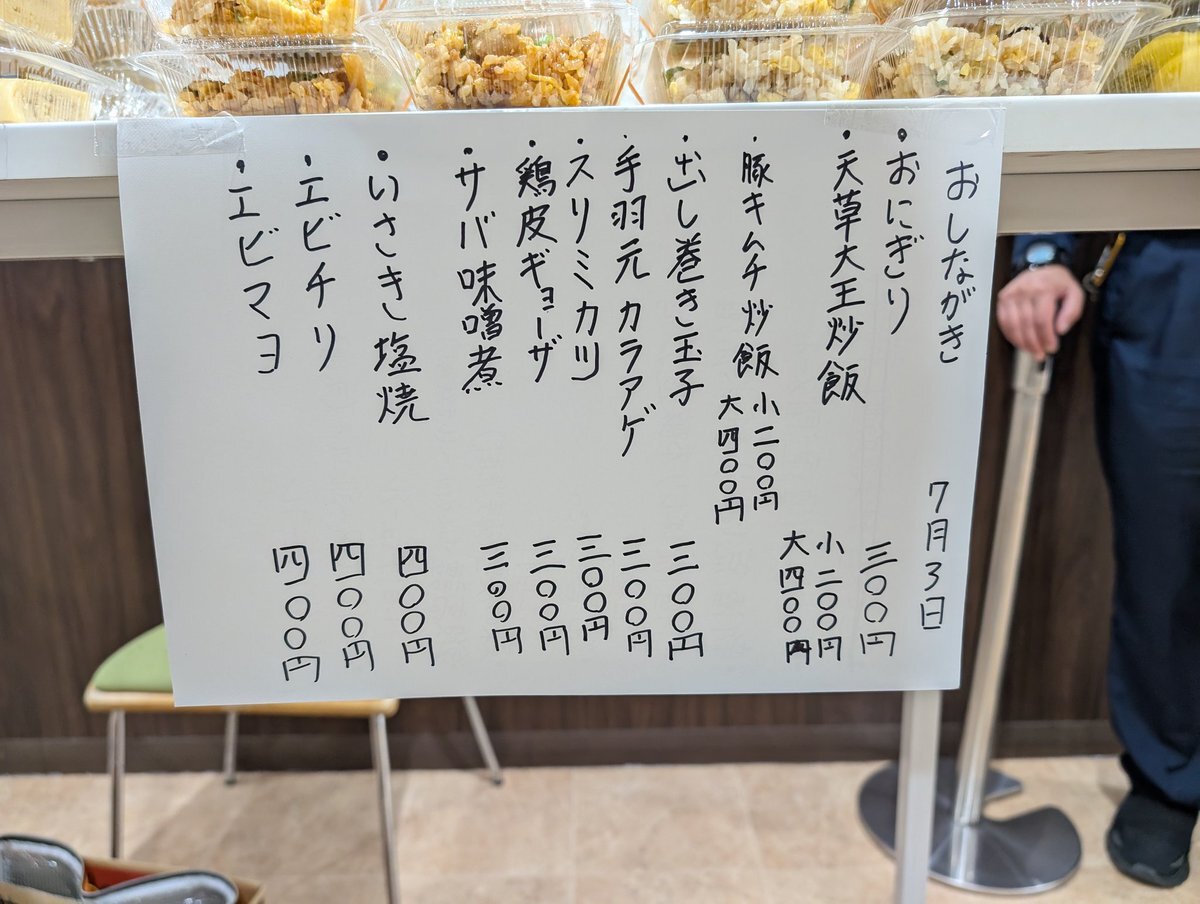 おしながき 7月3日
・おにぎり 三〇〇円
・天草大王炒飯 小二〇〇円
大四〇〇円
・豚キムチ炒飯 小二〇〇円
大四〇〇円
・出し巻き玉子 三〇〇円
・手羽元カラアゲ 三〇〇円
・スリミカツ 三〇〇円
・鶏皮ギョーザ 三〇〇円
・サバ味噌煮 三〇〇円
・いさき塩焼 四〇〇円
・エビチリ 四〇〇円
・エビマヨ 四〇〇円